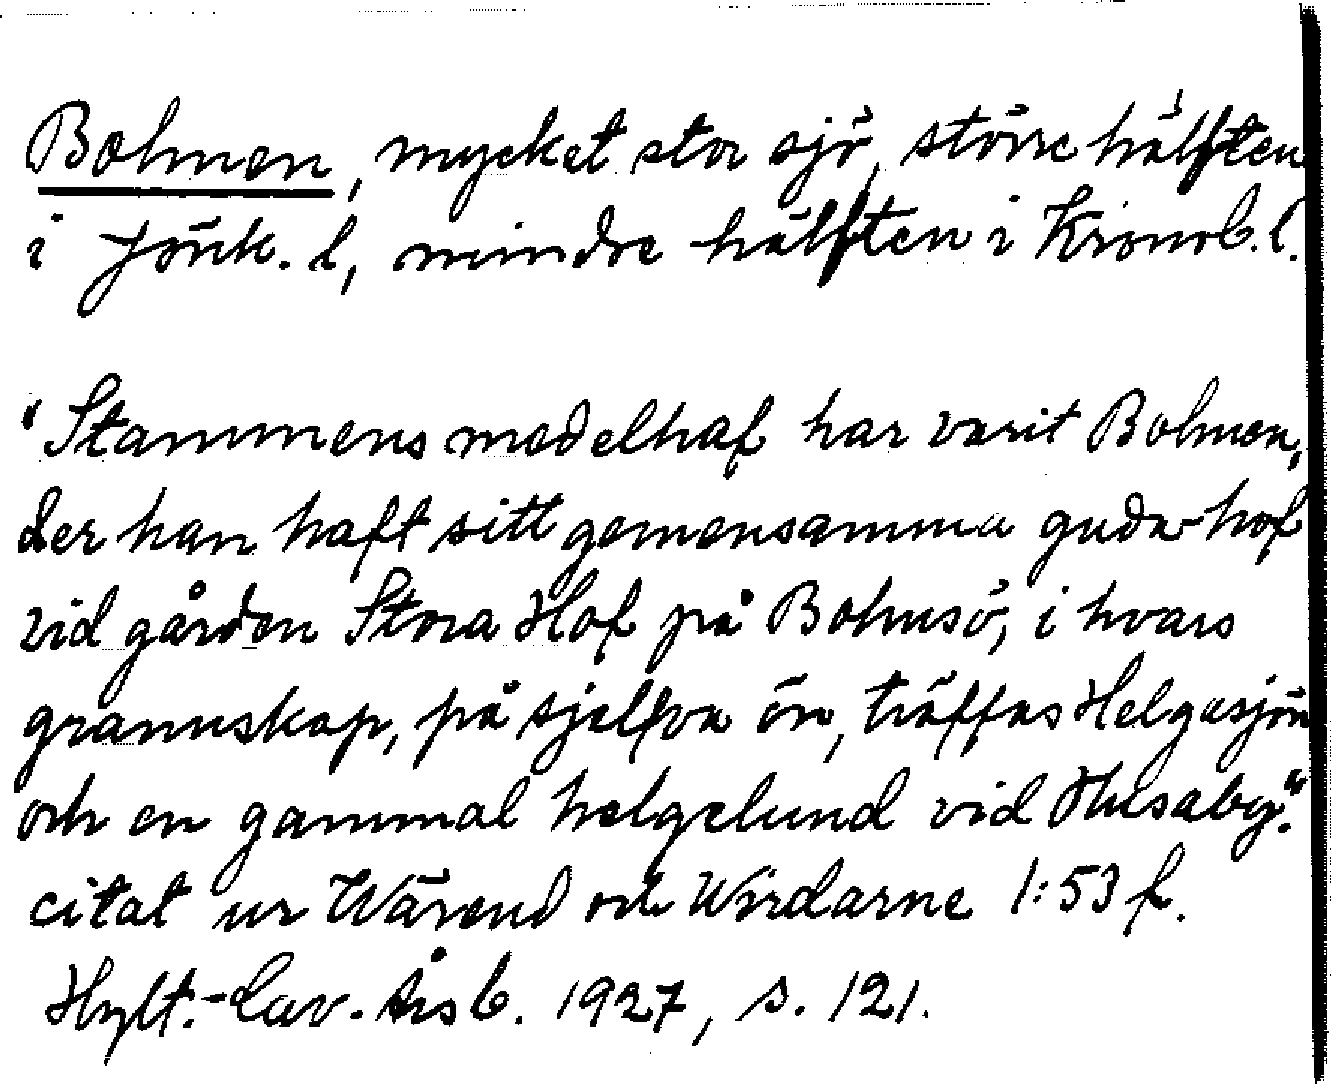 Bolmen, mycket stor sjö, större hälften
i Jönk. l, mindre hälften i Kronob. l.
"Stammens medelhaf har varit Bolmen,
der han haft sitt gemensamma guda-hof
vid gården Stora Hof på Bolmsö, i hvars
grannskap, på sjelfva ön, träffas Helgasjön
och en gammal helgelund vid Husaby."
citat ur Wärend och Wirdarne 1:53 f.
Hylt.-Cav. Årsb. 1927, s. 121.